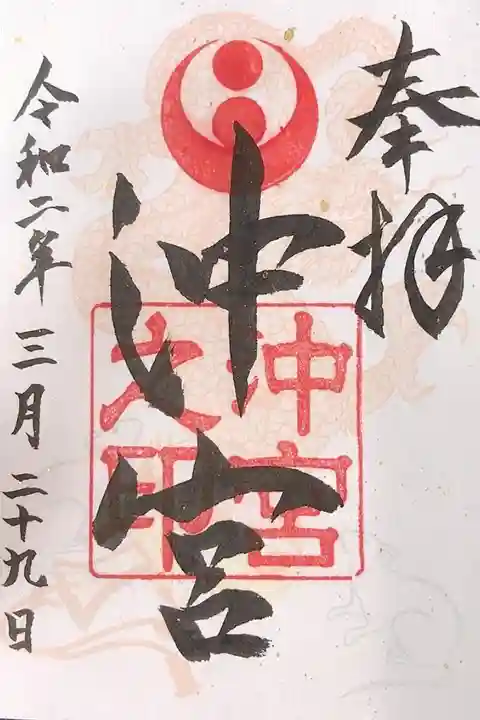 奉拝
沖宮
沖宮之印
令和二年三月二十九日